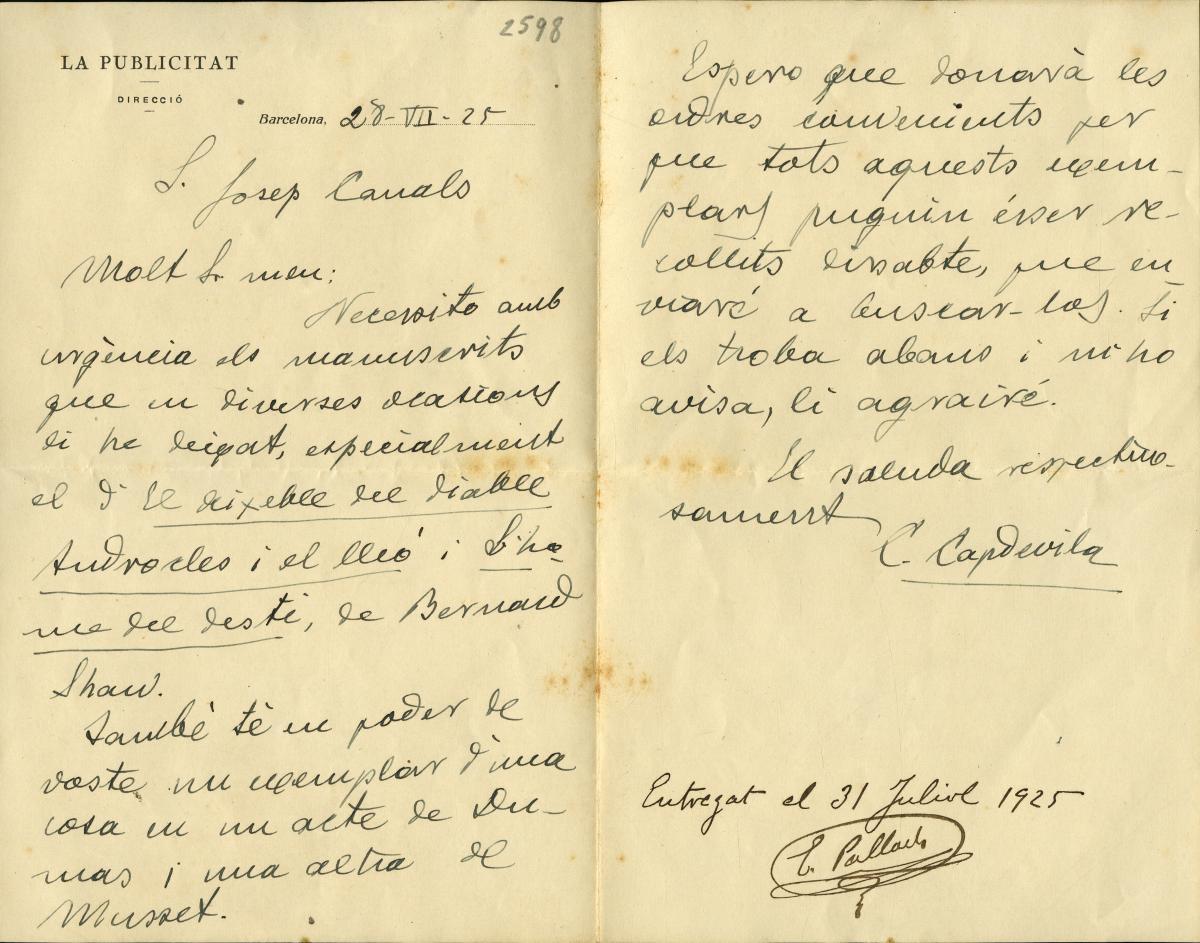 2598
LA PUBLICITAT
DIRECCIÓ
Barcelona, 28-VII-25
S. Josep Canals
Molt Sr meu:
Necessito amb
urgència els manuscrits
que en diverses ocasions
li he deixat, especialment
el d'El deixeble del diable
Androcles i el lleó i L'ho-
me del destí, de Bernard
Shaw.
També té en poder de
vostè un exemplar d'una
cosa en un acte de Du-
mas i una altra de
Musset.
Espero que donarà les
ordres convenients per
que tots aquests exem-
plars puguin ésser re-
collits dissabte, que en
viaré a buscar-los. Si
els troba abans i m'ho
avisa, li agrairé.
El saluda respectuo-
sament
C. Capdevila
Entregat el 31 Juliol 1925
E. Pallach